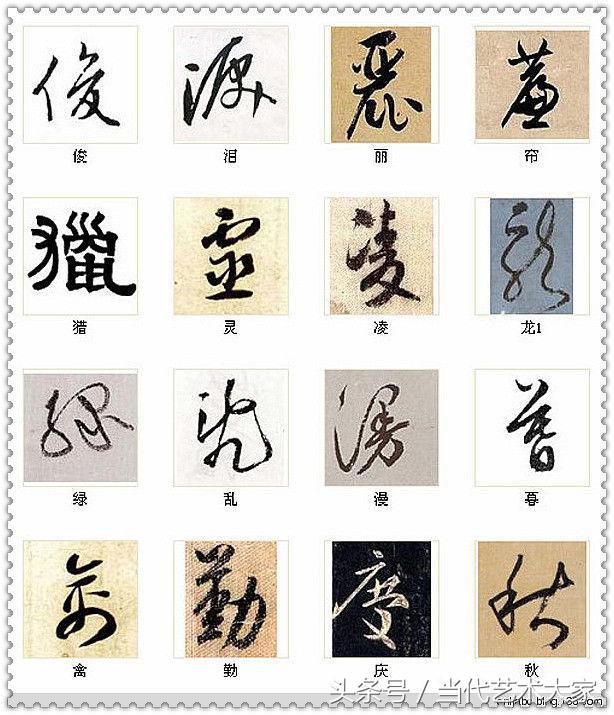 俊 泪 丽 帘
猎 灵 凌 龙1
绿 乱 漫 暮
禽 勤 庆 秋
头条号 / 当代艺术大家